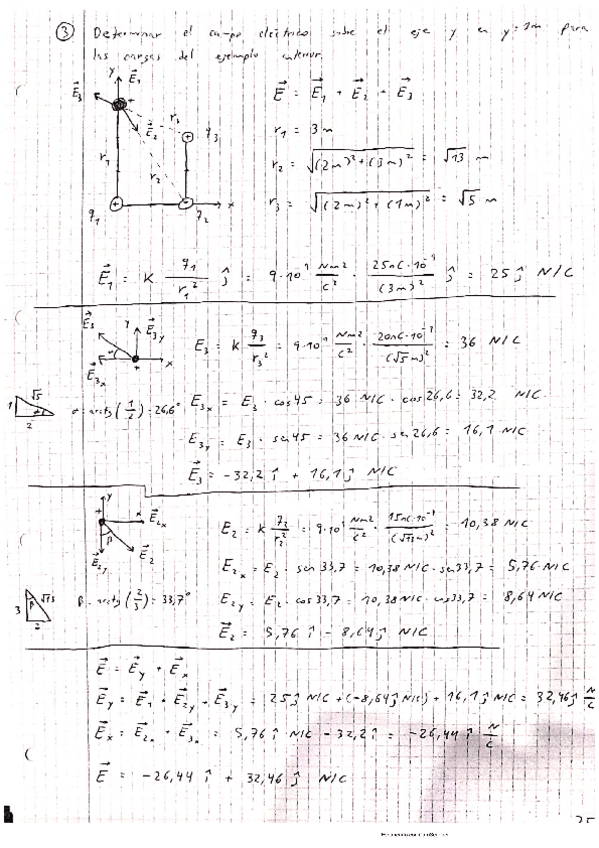 ③ Determinar el campo eléctrico sobre el eje y en y=3m para
las cargas del ejemplo anterior.
y E⃗₁
E⃗₃
E⃗₂ r₃ q₃
r₁ r₂
q₁ q₂ x
E⃗ = E⃗₁ + E⃗₂ + E⃗₃
r₁ = 3m
r₂ = √((2m)² + (3m)²) = √13 m
r₃ = √((2m)² + (1m)²) = √5 m
E⃗₁ = K q₁/r₁² ĵ = 9·10⁹ Nm²/C² · 25nC·10⁻⁹/(3m)² ĵ = 25 ĵ N/C
E⃗₃ y E⃗₃y
E⃗₃x α x
E₃ = K q₃/r₃² = 9·10⁹ Nm²/C² · 20nC·10⁻⁹/(√5m)² = 36 N/C
1 √5 α 2
α = arctg(1/2) = 26,6°
E₃x = E₃ · cos45 = 36 N/C · cos26,6 = 32,2 N/C
E₃y = E₃ · sen45 = 36 N/C · sen26,6 = 16,1 N/C
E⃗₃ = -32,2 î + 16,1 ĵ N/C
y x E⃗₂x
β E⃗₂y E⃗₂
E₂ = K q₂/r₂² = 9·10⁹ Nm²/C² · 15nC·10⁻⁹/(√13m)² = 10,38 N/C
E₂x = E₂ · sen33,7 = 10,38 N/C · sen33,7 = 5,76 N/C
3 β √13 2
β = arctg(2/3) = 33,7°
E₂y = E₂ · cos33,7 = 10,38 N/C · cos33,7 = 8,64 N/C
E⃗₂ = 5,76 î - 8,64 ĵ N/C
E⃗ = E⃗y + E⃗x
E⃗y = E⃗₁ + E⃗₂y + E⃗₃y = 25 ĵ N/C + (-8,64 ĵ N/C) + 16,1 ĵ N/C = 32,46 ĵ N/C
E⃗x = E⃗₂x + E⃗₃x = 5,76 î N/C - 32,2 î = -26,44 î N/C
E⃗ = -26,44 î + 32,46 ĵ N/C